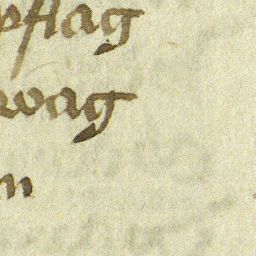 pflag
wag
n